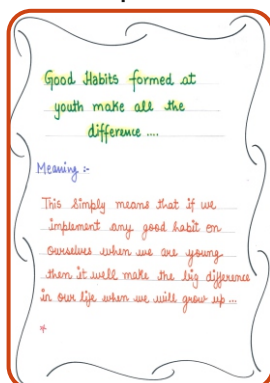 Good Habits formed at
youth make all the
difference ....
Meaning :-
This simply means that if we
implement any good habit on
ourselves when we are young
then it well make the big difference
in our life when we will grow up ...
*